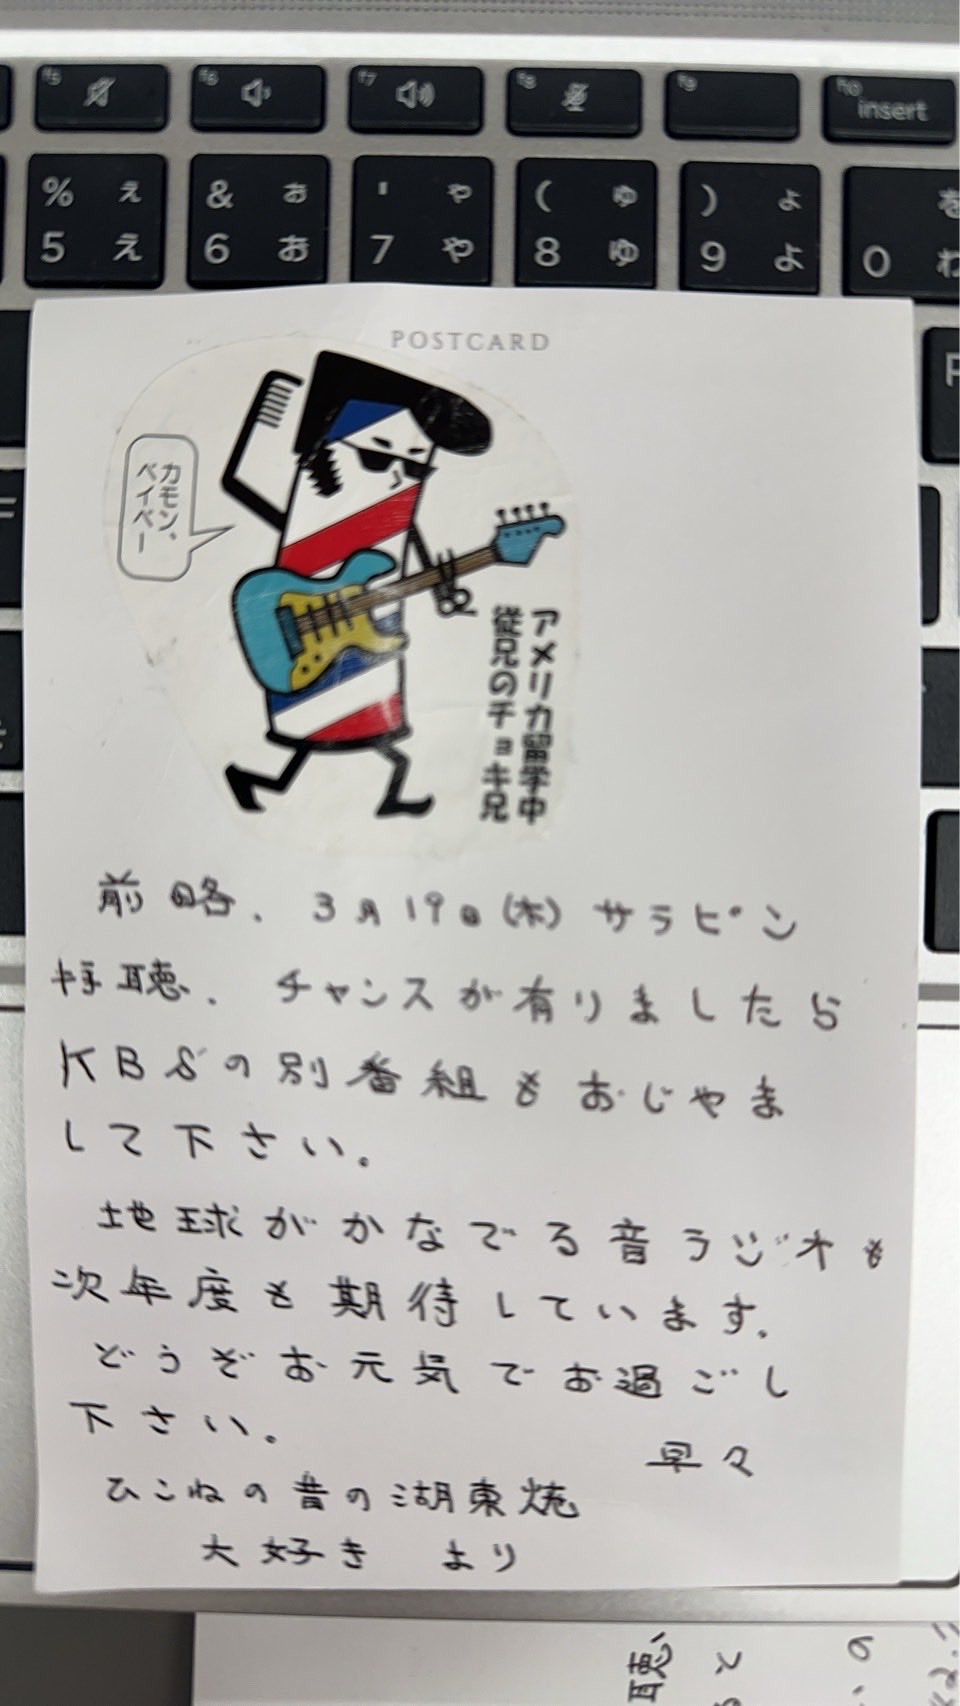 f5
f6
f7
f8
f9
f10 insert
% ぇ
5 え
& ぉ
6 お
' ゃ
7 や
( ゅ
8 ゆ
) ょ
9 よ
を
0 わ
P
POSTCARD
カモン、
ベイベー
アメリカ留学中
従兄のチョキ兄
前略、3月19日(木)サラピン
拝聴、チャンスが有りましたら
KBSの別番組もおじゃま
して下さい。
地球がかなでる音ラジオも
次年度も期待しています。
どうぞお元気でお過ごし
下さい。
早々
ひこねの昔の湖東焼
大好き より
聴、
と
の